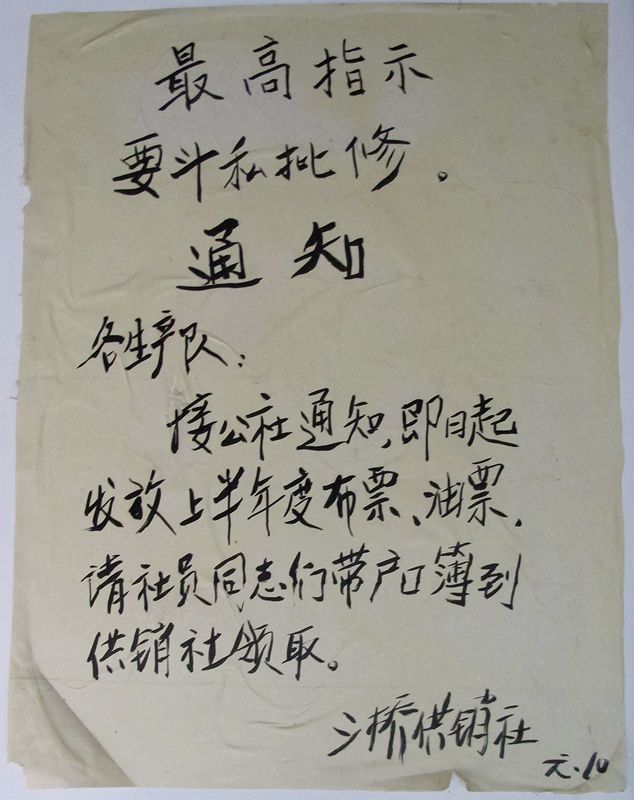 最高指示
要斗私批修。
通知
各生产队：
接公社通知,即日起
发放上半年度布票、油票.
请社员同志们带户口簿到
供销社领取。
桥供销社
元.10